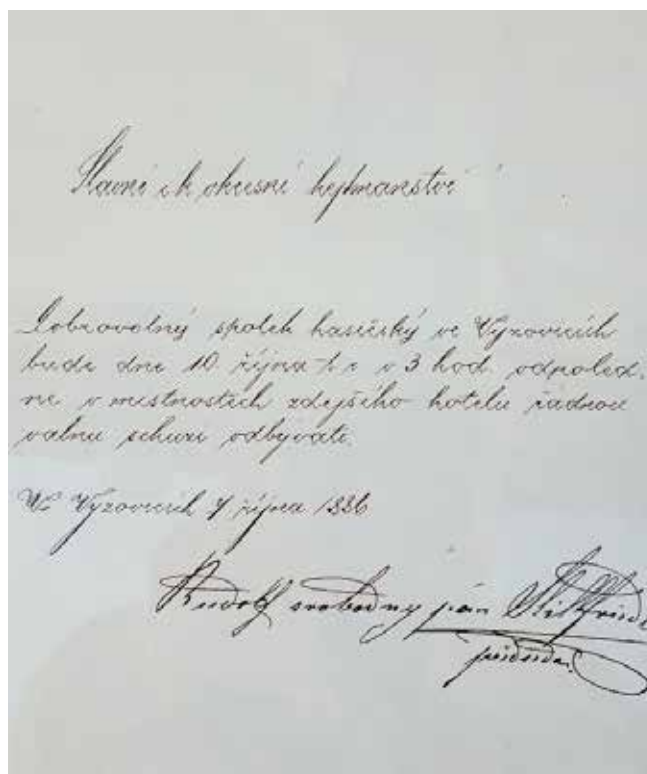 Slavné ck okresní hejtmanství
Dobrovolný spolek hasičský ve Vyzovicích
bude dne 10 října t r v 3 hod. odpoled.
ne v místnostech zdejšího hotelu řádnou
valnu schuzi odbývati.
Ve Vyzovicích října 1886
Rudolf svobodny pán Stillfried